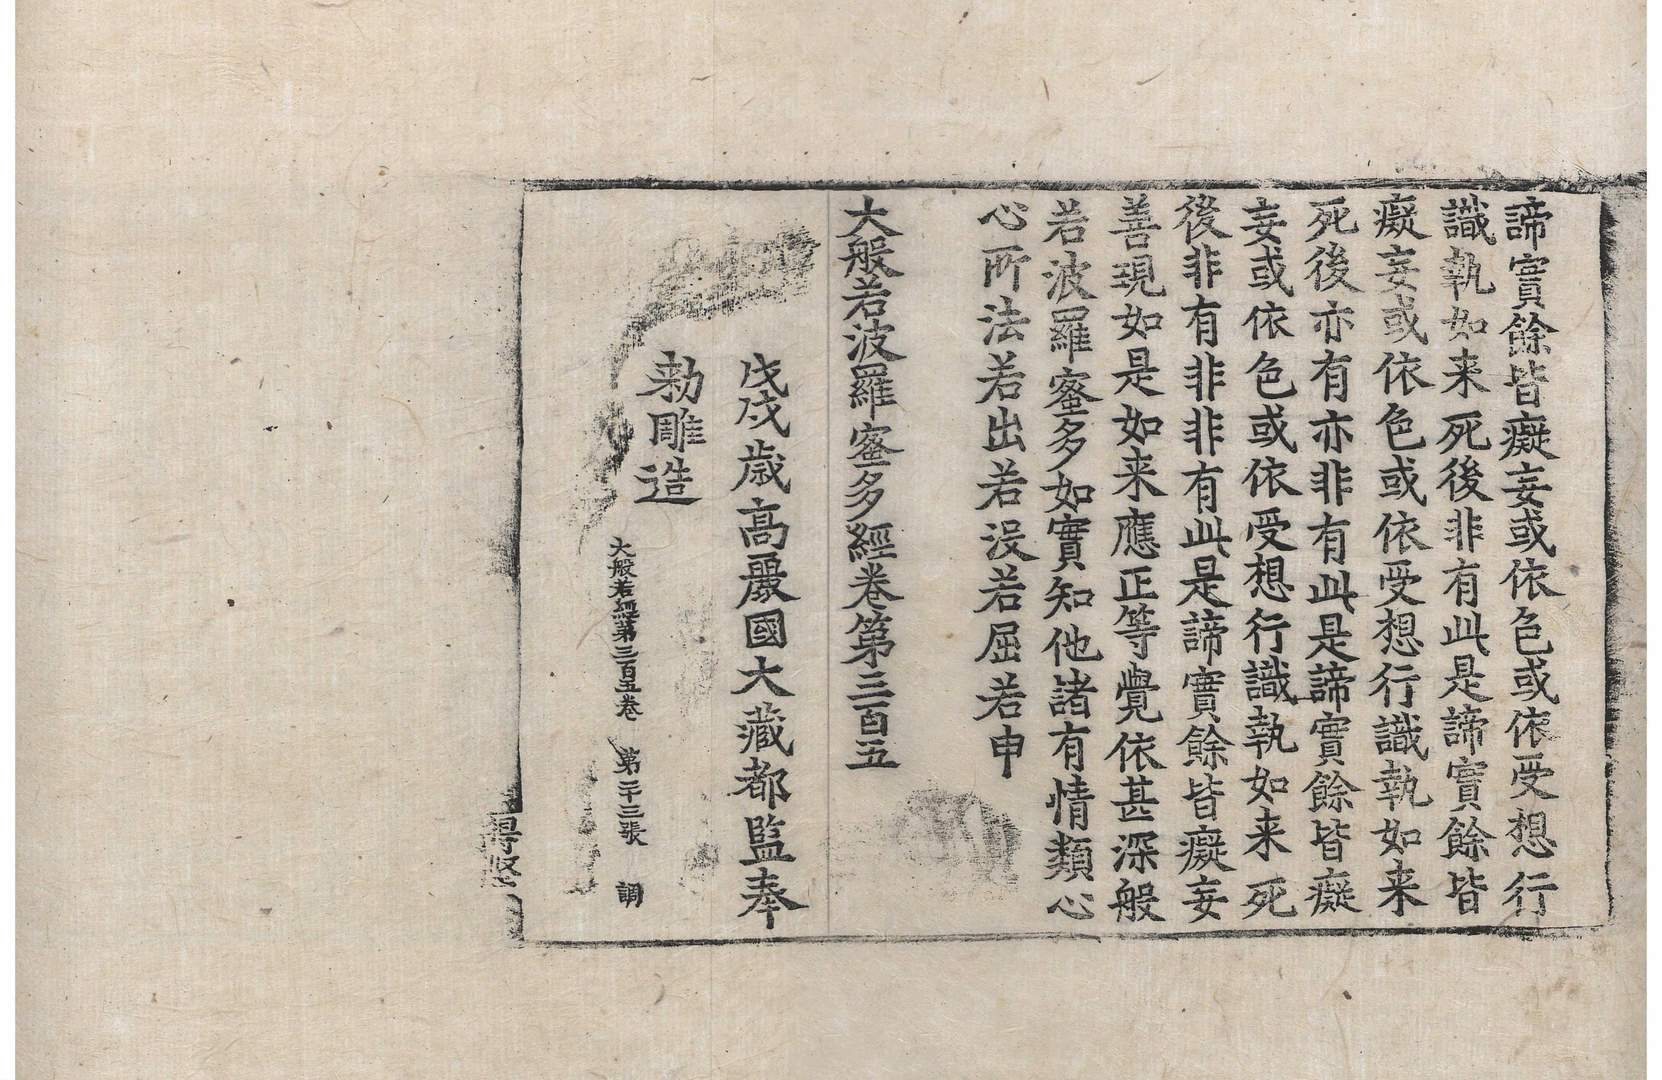 諦實餘皆癡妄或依色或依受想行
識執如来死後非有此是諦實餘皆
癡妄或依色或依受想行識執如来
死後亦有亦非有此是諦實餘皆癡
妄或依色或依受想行識執如来死
後非有非非有此是諦實餘皆癡妄
善現如是如来應正等覺依甚深般
若波羅蜜多如實知他諸有情類心
心所法若出若没若屈若申
大般若波羅蜜多經卷第三百五
戊戌歳高麗國大藏都監奉
勅雕造
大般若經第三百五卷 第二十三張 調
得堅